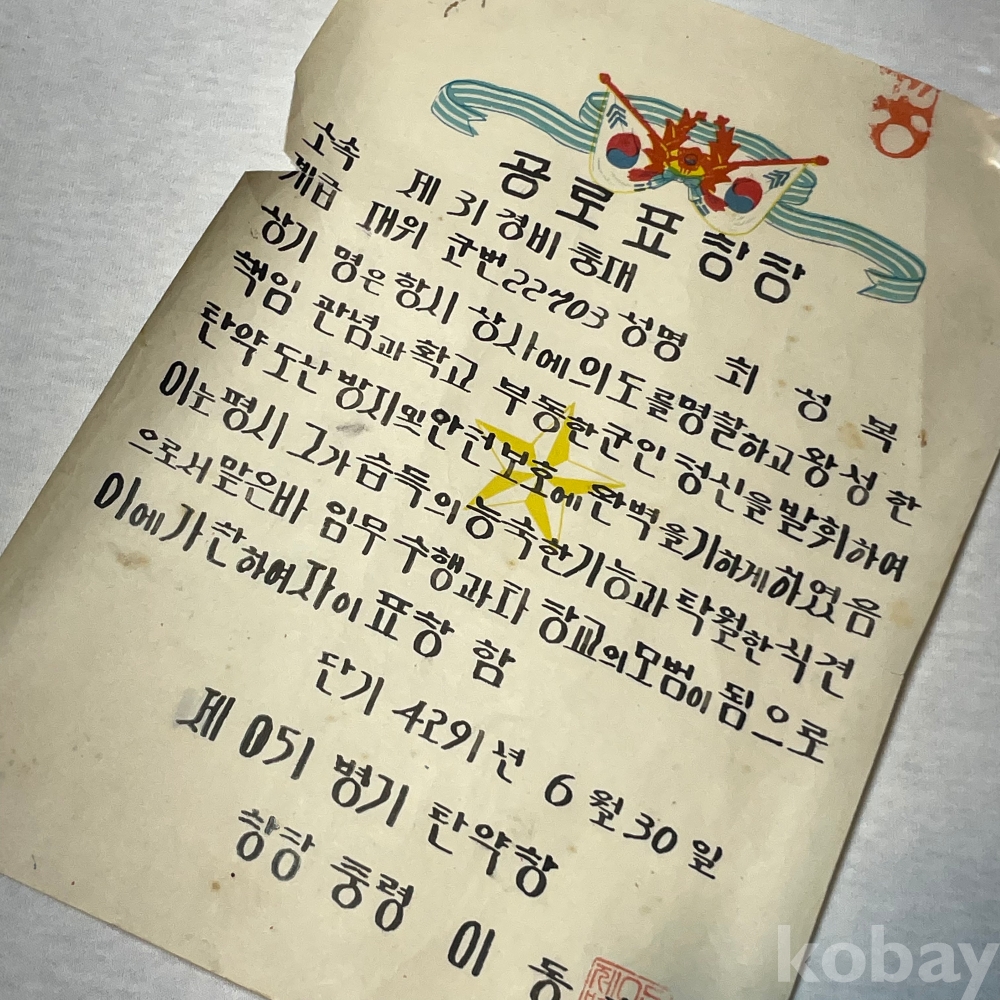 공로표창장
소속 제 31 경비 중대
계급 대위 군번 22703 성명 최 성 복
상기 명은 항시 상사에 의도를 명찰하고 왕성한
책임 관념과 확고 부동한 군인 정신을 발휘하여
탄약 도난 방지 및 안전 보호에 완벽을 기하게 하였음
이는 평시 그가 습득의 능숙한 기능과 탁월한 식견
으로서 맡은바 임무 수행과 타 장교의 모범이 됨으로
이에 가한하여 자이 표창 함
단기 4291년 6월 30일
제 051 병기 탄약창
창장 중령 이 동
kobay